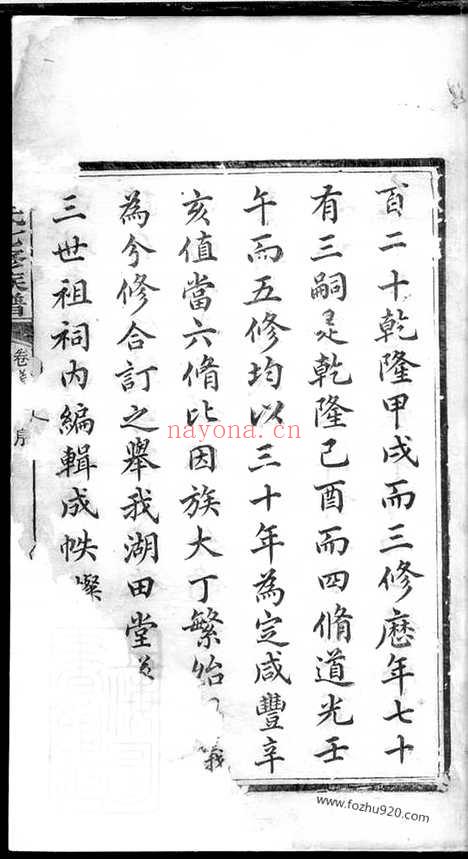 百二十乾隆甲戌而三修歷年七十
有三嗣是乾隆己酉而四脩道光壬
午而五修均以三十年為定咸豐辛
亥值當六脩比因族大丁繁始議
為分修合訂之舉我湖田堂
三世祖祠内編輯成帙燦
族譜
卷首
序
nayona.cn
www.fozhu920.com